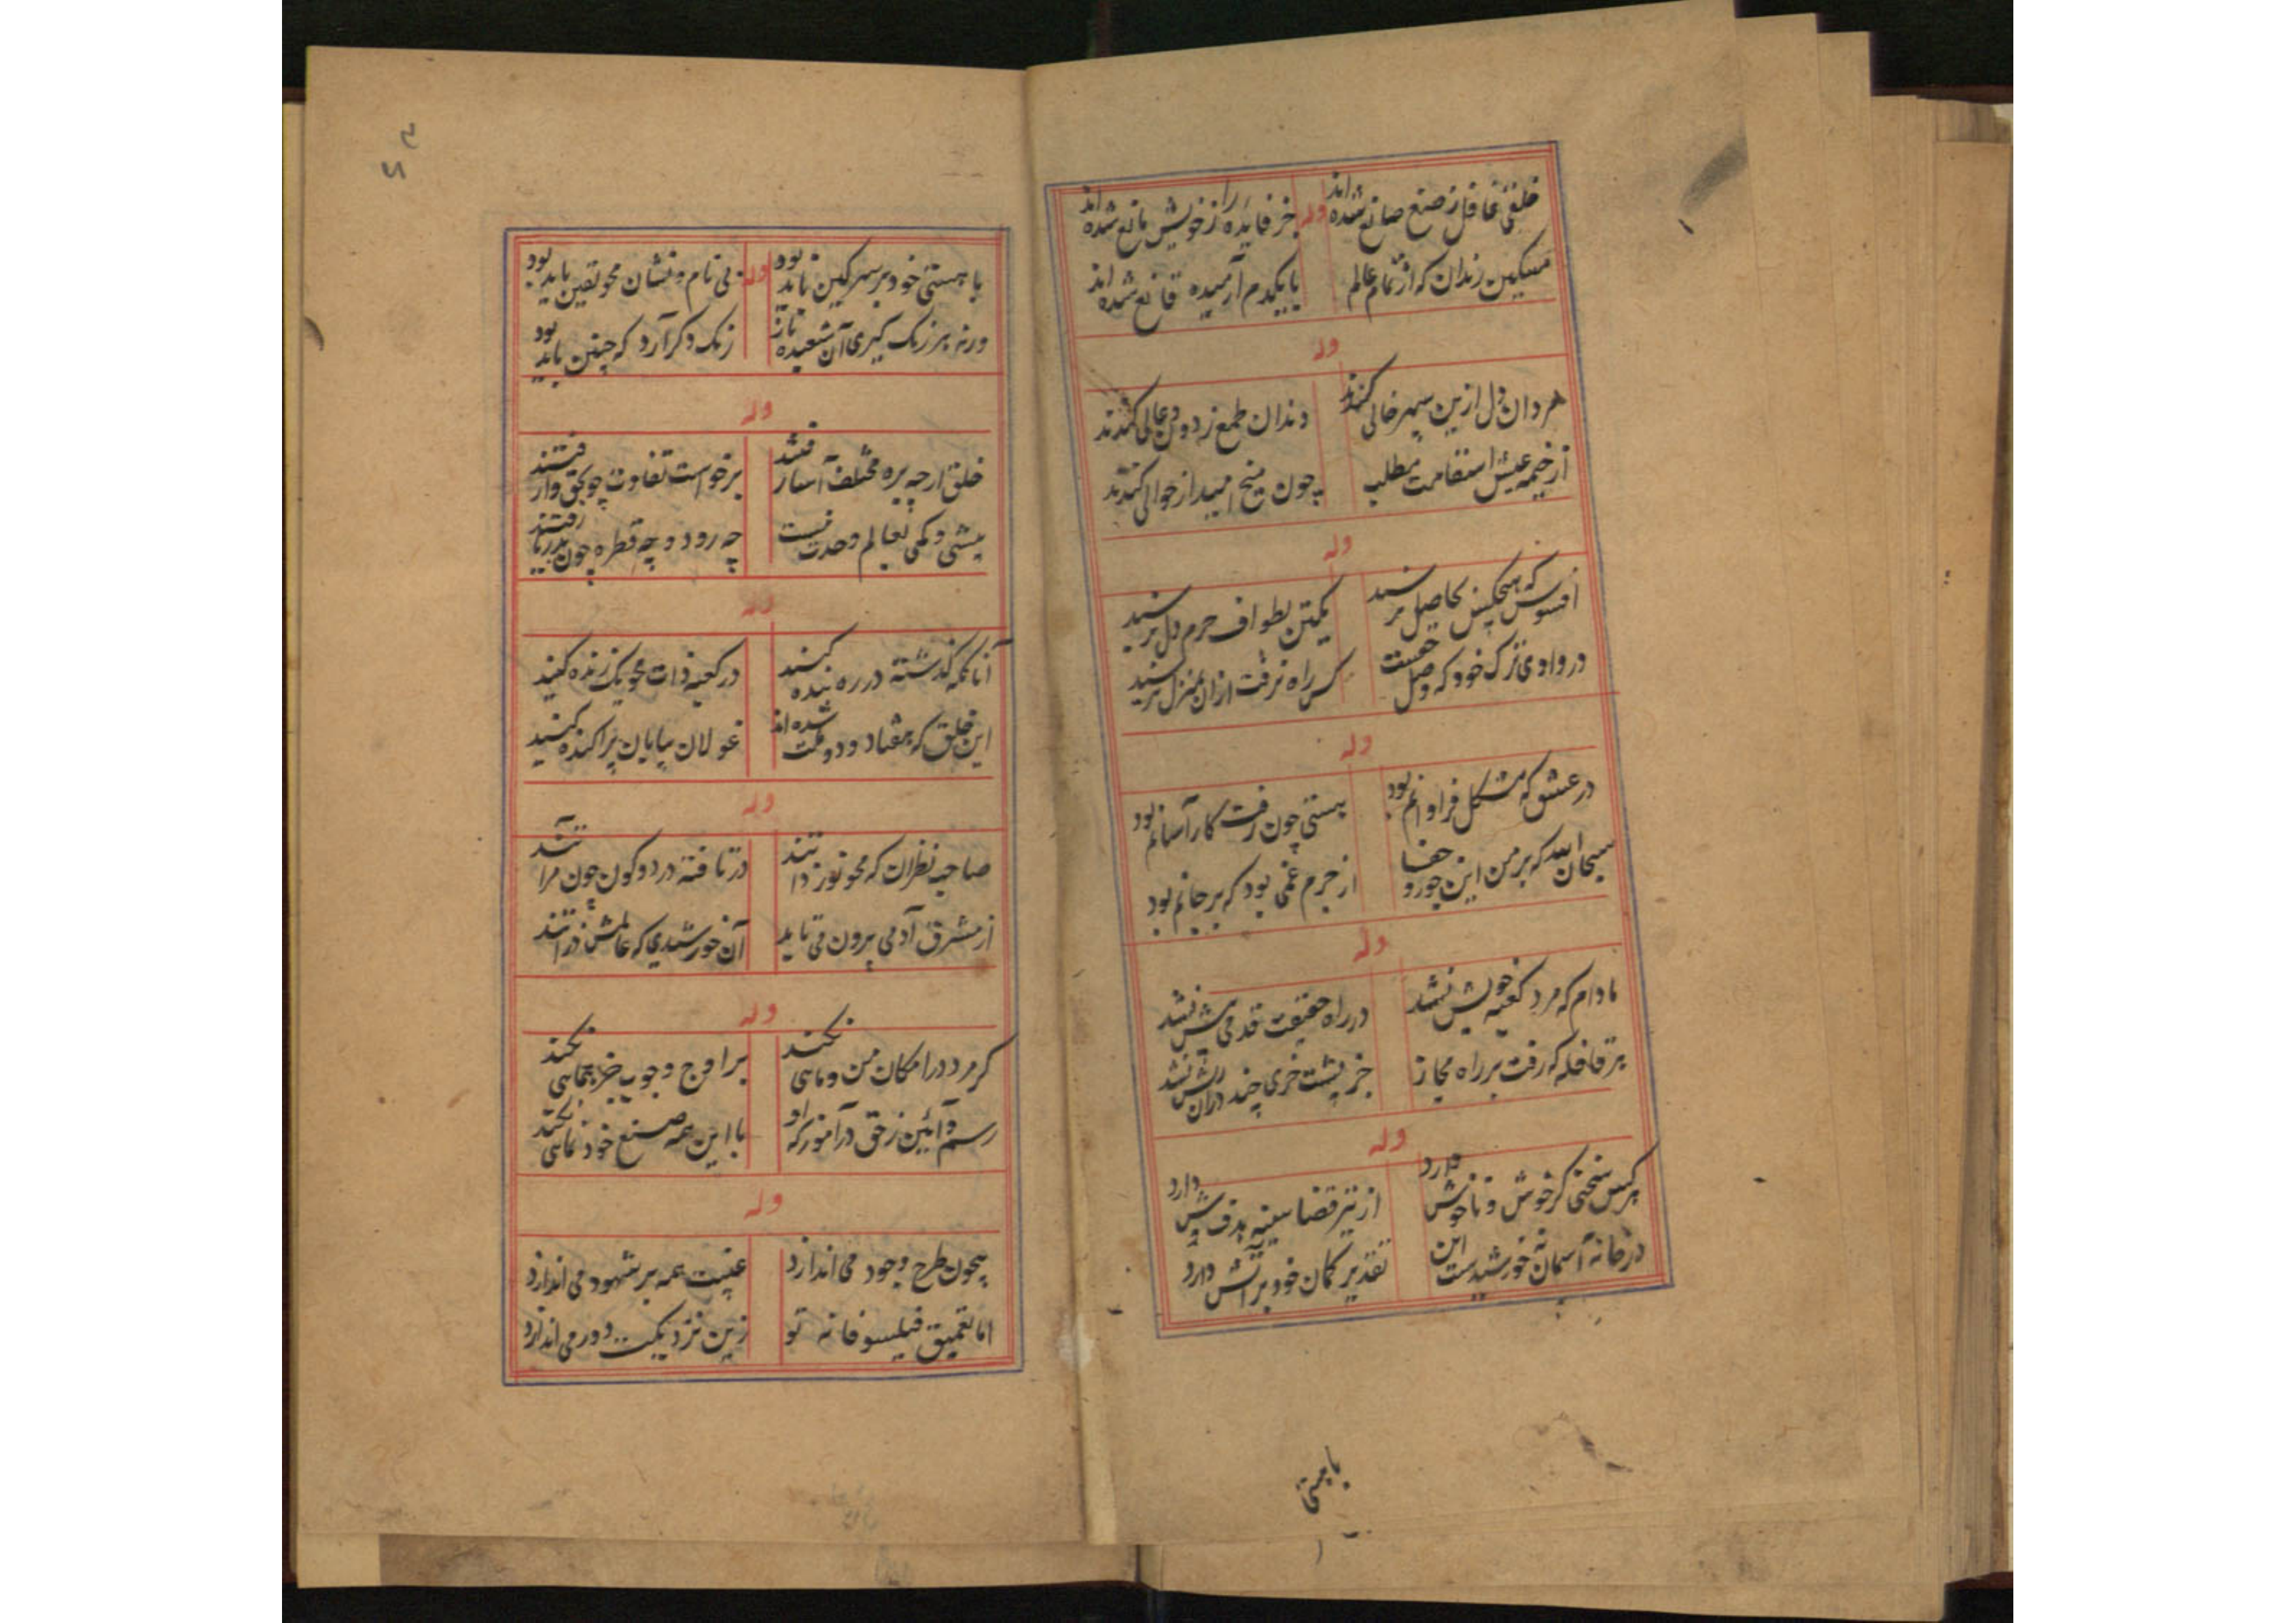 خلقی غافل ز صنع صانع شده‌اند
وله
خر فایده را ز خویش مانع شده‌اند
مسکین رندان که از تمام عالم
با یکدم آرمیده قانع شده‌اند
وله
مردان دل ازین سپهر خالی کندند
دندان طمع ز دون و عالی کندند
از خیمه عیش استقامت مطلب
چون میخ امید از حوالی کندند
وله
افسوس که هیچکس بحاصل نرسید
یکتن بطواف حرم دل نرسید
در وادی ترک خود که وصل حقست
کس راه نرفت ازان بمنزل نرسید
وله
در عشق که مشکل فراوانم بود
هستی چون رفت کار آسانم بود
سبحان الله که بر من این جور و جفا
از جرم غمی بود که بر جانم بود
وله
مادام که مرد کعبه خویش نشد
در راه حقیقت قدمی پیش نشد
هر قافله که رفت بر راه مجاز
جز پشت خری چند دران ریش نشد
وله
هر کس سخنی گر خوش و ناخوش دارد
از تیر قضا سینه هدف وش دارد
در خانه آسمان نه خورشیدست این
تقدیر کمان خود بر آتش دارد
با هستی
با هستی خود بر سر کین باید بود
وله
بی نام و نشان محو یقین باید بود
ورنه هر رنگ گیری آن شعبده باز
رنگ دگر آرد که چنین باید بود
وله
خلق ارچه بره مختلف آسار فتند
برخواست تفاوت چو بحق وار فتند
بیشی و کمی بعالم وحدت نیست
چه رود و چه قطره چون بدریا رفتند
وله
آنانکه گذشته در ره بنده کیند
در کعبه ذات محو یک زنده کیند
این خلق که هفتاد و دو ملت شده‌اند
غولان بیابان پراکنده کیند
وله
صاحب نظران که محو نور ذاتند
در تافته در دو کون چون مرآتند
از مشرق آدمی برون می تابد
آن خورشیدی که عالمش ذراتند
وله
گر مرد در امکان من و ماهی نکند
بر اوج وجوب جز بجاهی نکند
رسم و آئین ز حق درآموز که او
با این همه صنع خود نماهی نکند
وله
بیچون طرح وجود می اندازد
غیبت همه بر شهود می اندازد
اما تعمیق فیلسوفانه تو
زین نزدیکیت دور می اندازد